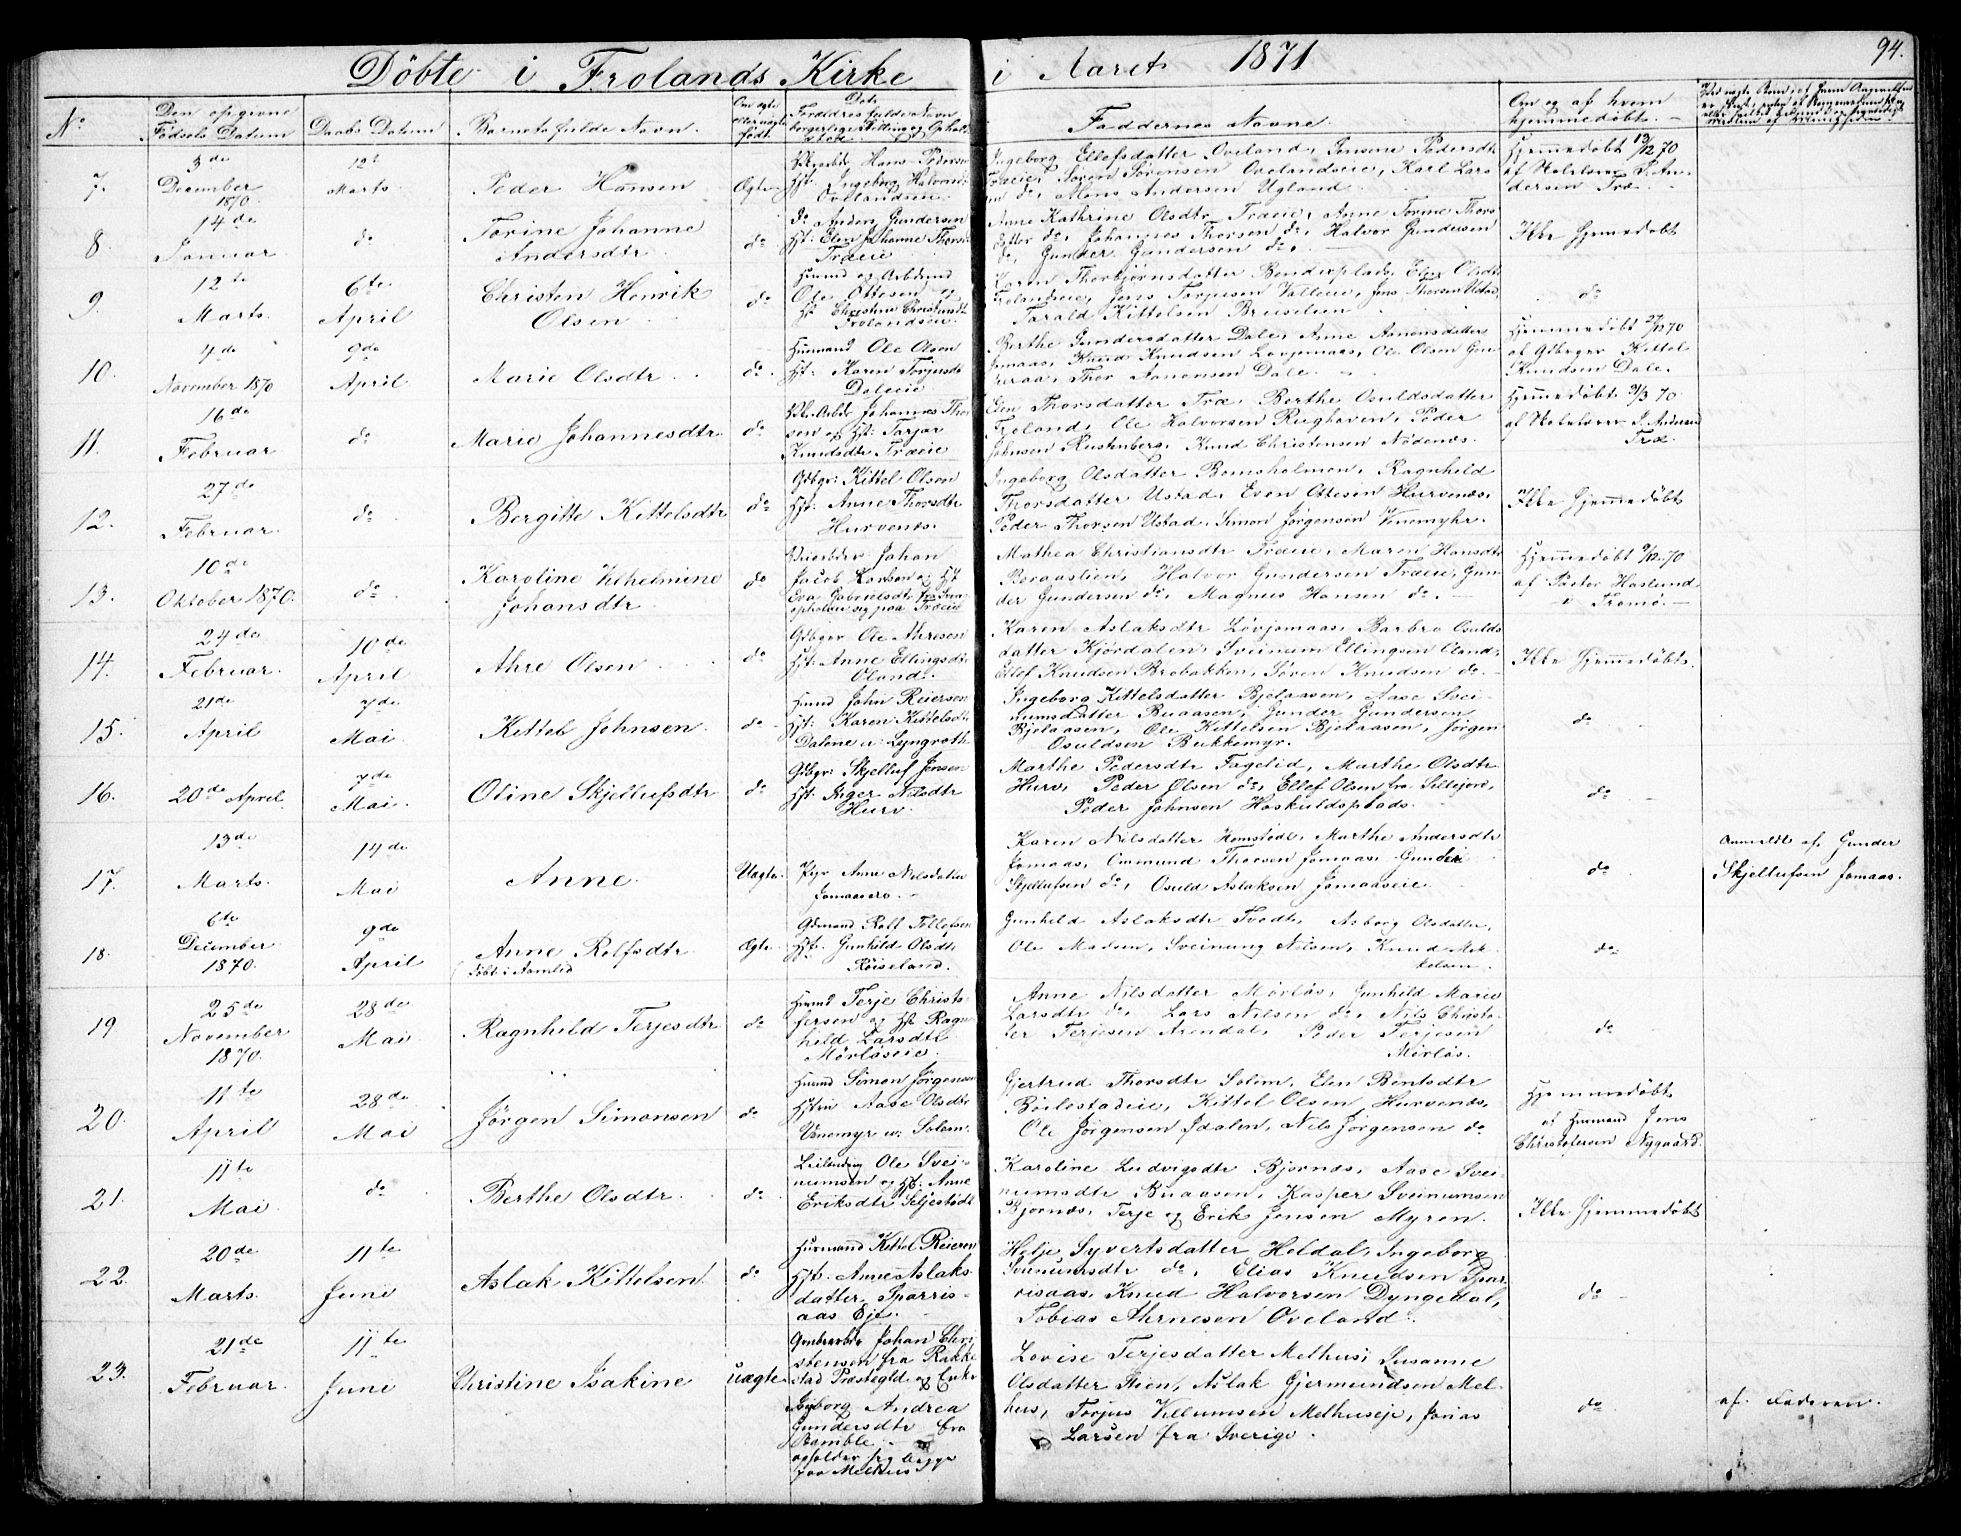 Döbte i Frolands Kirke i Aaret 1871
94.
No
Den opgivne Fødsels Datum
Daabs Datum
Barnets fulde Navn.
Om ægte eller uægte født.
Forældres fulde Navn borgerlige Stilling og Ophold
Faddernes Navne.
Om og af hvem hjemmedøbt.
7.
3de December 1870.
12te Marts.
Peder Hansen
Ægte
Hans Pedersen
Hst. Ingeborg Halvorsd
Ovelandseie.
Ingeborg Ellefsdatter Oveland, Pedersdtr
Træeie, Søren Sørensen Ovelandseie, Karl Lars
sen do, Mons Andersen Ugland.
Hjemmedøbt 13/12 70
af Skolelærer S. An-
dersen Træ.
8.
14de Januar.
do
Torine Johanne
Andersdtr.
do
do Anders Gundersen
Hst: Elen Johanne Thorsd
Træeie
Anne Kathrine Olsdtr Træeie, Anne Torine Thors
datter do, Johannes Thorsen do, Halvor Gundersen
do, Gunder Gundersen do.
Ikke hjemmedøbt
9.
12te Marts.
6te April
Christen Henrik
Olsen
do
Husmd og Arbdsmd
Ole Ottesen og
Hst Christine Christensdtr
Frolandseie.
Karen Thorbjørnsdatter Benderplads, Elen Olsdtr
Frolandseie, Jens Torjusen Valleeie, Jens Thorsen Ustad,
Tarald Kittelsen Bruselien
do
10.
4de November 1870
9de April.
Marie Olsdtr
do.
Husmand Ole Olsen
Hst: Karen Torjusdtr
Daleeie
Berthe Gundersdatter Dale, Anne Aanonsdatter
Jomaas, Knud Knudsen Løvjomaas, Ole Olsen
Thor Aanonsen Dale.
Hjemmedøbt 27/12 70
af Gdbrger Kittel
Knudsen Dale.
11.
16de Februar
do
Marie Johannesdtr.
do
Johannes Thor
sen og Hst: Tarjer
Knudsdtr Træeie
Elen Thorsdatter Træ, Berthe Osuldsdatter
Froland, Ole Halvorsen Rughaven, Peder
Johnsen Rustenberg, Knud Christensen Nødenæs.
Hjemmedøbt 31/3 70
af Skolelærer S. Andersen
Træ.
12.
27de Februar.
do.
Bergitte Kittelsdtr
do
Gdbgr: Kittel Olson
Hst: Anne Thorsdtr
Hurvenæs.
Ingeborg Olsdatter Bomsholmen, Ragnhild
Thorsdatter Ustad, Even Ottesen Hurvenæs,
Peder Thorsen Ustad, Simon Jørgensen Vinemyhr.
Ikke hjemmedøbt
13.
10de Oktober 1870.
do.
Karoline Vilhelmine
Johansdtr
do
Johan
Jacob Karlsen og Hst
Eva Gabrielsdtr
opholder sig paa Træeie
Mathea Christiansdtr Træeie, Maren Hansdtr
Boraaslien, Halvor Gundersen Træeie, Gun-
der Gundersen do, Magnus Hansen do.
Hjemmedøbt 9/12 70
af Pastor Haslund
i Tromø.
14.
24de Februar.
10de April
Ahre Olsen
do
Gdbger Ole Ahresen
Hst: Anne Ellingsdtr
Oland.
Karen Aslaksdtr Løvjomaas, Barbro Osulds
datter Kjørdalen, Sveinum Ellingsen Oland,
Ellef Knudsen Brobakken, Søren Knudsen do.
Ikke hjemmedøbt.
15.
21de April
7de Mai.
Kittel Johnsen.
do
Husmd John Reiersen
Hst: Karen Kittelsdtr
Dalene u: Lyngroth
Ingeborg Kittelsdatter Bjelaasen, Aase Svei-
numsdatter Buaasen, Gunder Gundersen
Bjelaasen, Ole Kittelsen Bjelaasen, Jørgen
Osuldsen Bukkemyr.
do
16.
20de April
7de Mai.
Oline Skjellufsdtr
do
Gdbgr: Skjelluf Jensen
Hst: Inger Nilsdtr
Hurv
Marthe Pedersdtr Fagelid, Marthe Olsdtr
Hurv, Peder Olsen do, Ellef Olsen fra Siltejord,
Peder Johnsen Haskuldsplads.
do
17.
13de Marts.
14de Mai
Anne.
Uægte.
Pige Anne Nilsdatter
Jomaas
Karen Nilsdatter Hemstødl, Marthe Andersdtr
Jomaas, Ommund Thorsen Jomaas, Gunder
Skjellufsen do, Osuld Aslaksen Jomaaseie.
do
Anmeldt af Gunder
Skjellufsen Jomaas.
18.
6te December 1870.
9de April
Anne Rolfsdtr.
døbt i Aamlid
Ægte
Gdmand Rolf Tellefsen
Hst. Gunhild Olsdtr
Røiseland.
Gunhild Aslaksdtr Tvedt, Asborg Olsdatter,
Ole Sveinung Nilsen, Knud Mik-
kelsen.
do
19
25de November 1870.
28de Mai
Ragnhild Terjesdtr
do
Husmd Terje Christo-
fersen og Hst Ragn-
hild Larsdtr
Mørløseie.
Anne Nilsdatter Mørløs, Gunhild Marie
Larsdtr do, Lars Nilsen do, Nils Christo-
fer Terjesen Arendal, Peder Terjesen
Mørløs.
do
20.
11te April
28de Mai
Jørgen Simonsen
do
Husmd Simon Jørgensen
Hstru Aase Olsdtr
Vinemyr u: Solem.
Gjertrud Thorsdtr Solem, Elen Bentsdtr
Bøilestadeie, Kittel Olsen Hurvenæs,
Ole Jørgensen Ødalen, Nils Jørgensen do
Hjemmedøbt
af Husmand Jens
Christofersen Nygaard.
21.
11te Mai
do
Berthe Olsdtr.
do
Leilænding Ole Svei-
numsen og Hst: Anne
Eriksdtr Seljestødl
Karoline Ludvigsdtr Bjørnæs, Aase Svei-
numsdtr Buaasen, Kasper Sveinumsen
Bjørnæs, Terje og Erik Jensen Myren.
Ikke hjemmedøbt
22.
20de Marts.
11te Juni
Aslak Kittelsen
do
Husmand Kittel Reiersen
Hst. Anne Aslaks-
datter, Sparris-
aas Eje.
Helje Syvertsdatter Heldal, Ingeborg
Sveinumsdtr do, Elias Knudsen Spar-
risaas, Knud Halvorsen Dyngedal,
Tobias Ahrnesen Oveland.
do
23.
21de Februar.
11te Juni
Christine Isakine
uægte
Grubearbdr Johan Chri-
stensen fra Rakke-
stad Præstegld og Enke
Andrea
Gundersdtr fra
Bamble,
opholder sig begge
paa Melhus
Lovise Terjesdatter Melhus, Susanne
Olsdatter Stien, Aslak Gjermundsen Mel-
hus, Torjus Villumsen Melhuseje, Jonas
Larsen fra Sverige.
do
af Faderen.